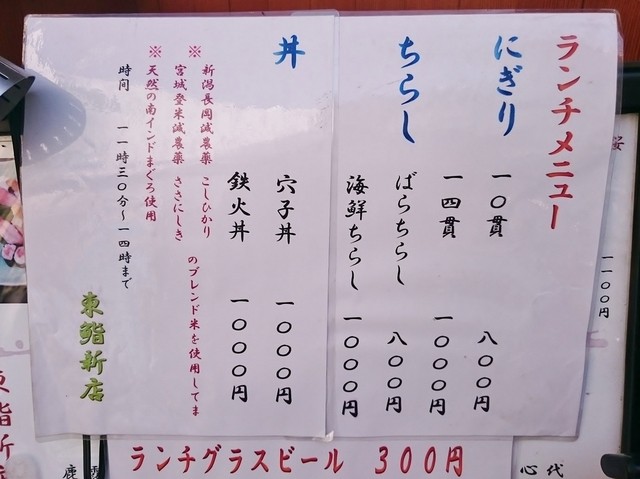 ランチメニュー
にぎり
一〇貫 八〇〇円
一四貫 一〇〇〇円
ちらし
ばらちらし 八〇〇円
海鮮ちらし 一〇〇〇円
丼
穴子丼 一〇〇〇円
鉄火丼 一〇〇〇円
※ 新潟長岡減農薬 こしひかり
宮城登米減農薬 ささにしき
のブレンド米を使用してま
※ 天然の南インドまぐろ使用
時間 一一時三〇分～一四時まで
東鮨新店
ランチグラスビール 300円
一一〇〇円
東鮨新
心代